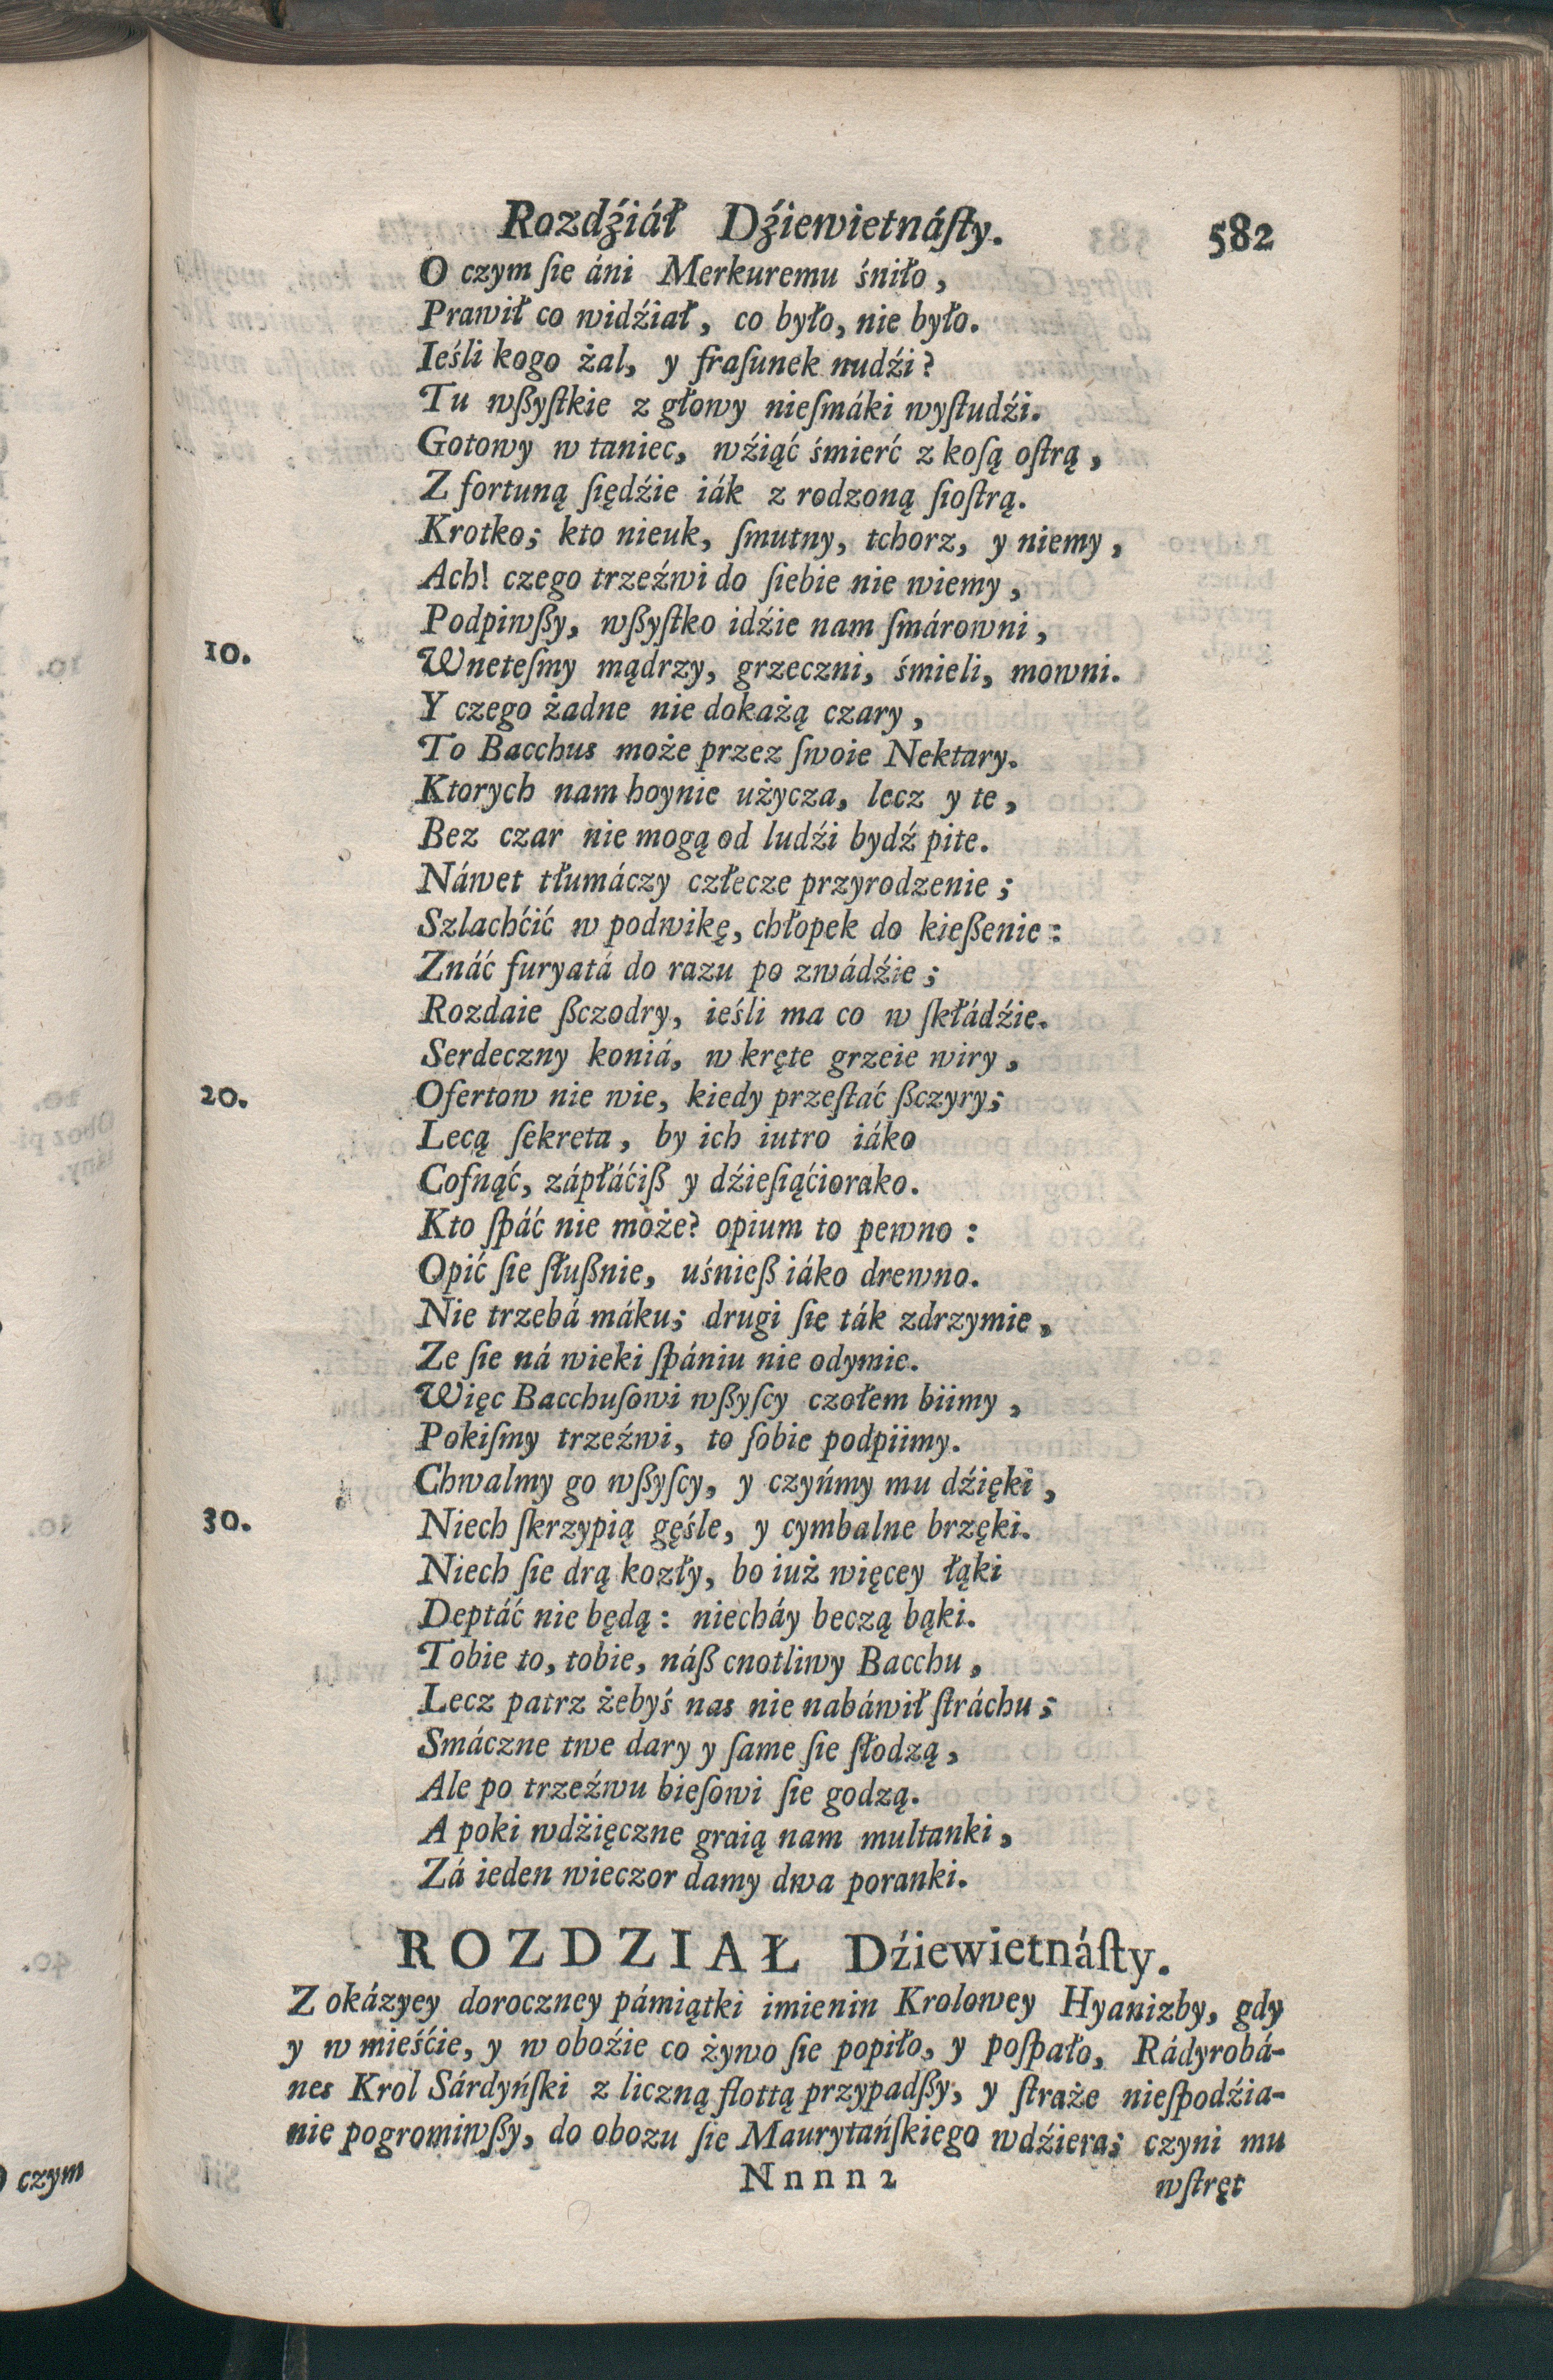 Rozdźiáł Dźiewietnáſty. 582
O czym ſie áni Merkuremu śniło,
Prawił co widźiał, co było, nie było.
Ieśli kogo żal, y fraſunek nudźi?
Tu wßyſtkie z głowy nieſmáki wyſtudźi.
Gotowy w taniec, wźiąć śmierć z koſą oſtrą,
Z fortuną ſiędźie iák z rodzoną ſioſtrą.
Krotko; kto nieuk, ſmutny, tchorz, y niemy,
Ach! czego trzeźwi do ſiebie nie wiemy,
Podpiwßy, wßyſtko idźie nam ſmárowni,
10. Wneteſmy mądrzy, grzeczni, śmieli, mowni.
Y czego żadne nie dokażą czary,
To Bacchus może przez ſwoie Nektary.
Ktorych nam hoynie użycza, lecz y te,
Bez czar nie mogą od ludźi bydź pite.
Náwet tłumáczy człecze przyrodzenie;
Szlachćić w podwikę, chłopek do kießenie:
Znáć furyatá do razu po zwádźie;
Rozdaie ßczodry, ieśli ma co w ſkłádźie.
Serdeczny koniá, w kręte grzeie wiry,
20. Ofertow nie wie, kiedy przeſtać ßczyry;
Lecą ſekreta, by ich iutro iáko
Cofnąć, zápłáćiß y dźieſiąćiorako.
Kto ſpáć nie może? opium to pewno:
Opić ſie ſłußnie, uśnieß iáko drewno.
Nie trzebá máku; drugi ſie ták zdrzymie,
Ze ſie ná wieki ſpániu nie odymie.
Więc Bacchuſowi wßyſcy czołem biimy,
Pokiſmy trzeźwi, to ſobie podpiimy.
Chwalmy go wßyſcy, y czyńmy mu dźięki,
30. Niech ſkrzypią gęśle, y cymbalne brzęki.
Niech ſie drą kozły, bo iuż więcey łąki
Deptáć nie będą: niecháy beczą bąki.
Tobie to, tobie, náß cnotliwy Bacchu,
Lecz patrz żebyś nas nie nabáwił ſtráchu;
Smáczne twe dary y ſame ſie ſłodzą,
Ale po trzeźwu bieſowi ſie godzą.
A poki wdźięczne graią nam multanki,
Zá ieden wieczor damy dwa poranki.
ROZDZIAŁ Dźiewietnáſty.
Z okázyey doroczney pámiątki imienin Krolowey Hyanizby, gdy
y w mieśćie, y w oboźie co żywo ſie popiło, y poſpało, Rádyrobá-
nes Krol Sárdyńſki z liczną flottą przypadßy, y ſtraże nieſpodźia-
nie pogromiwßy, do obozu ſie Maurytáńſkiego wdźiera; czyni mu
Nnnn2 wſtręt
czym